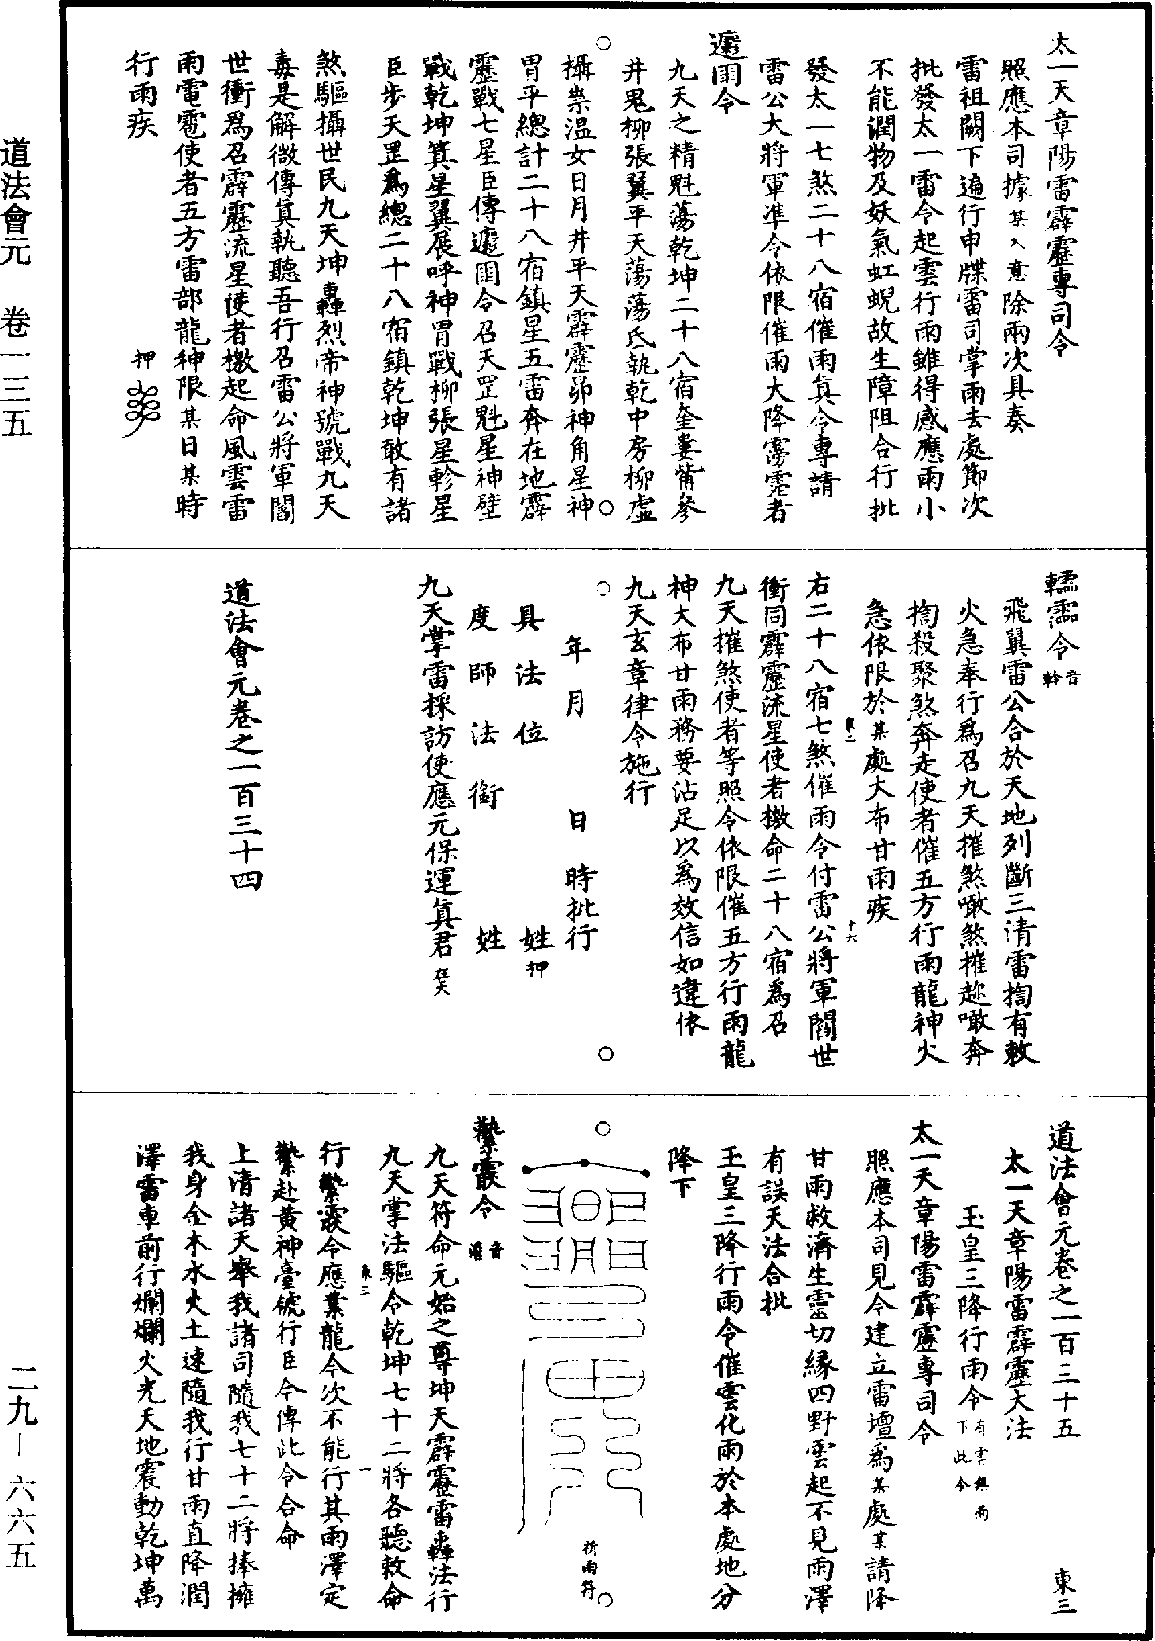 道法會元 卷一三五
二九—六六五
太一天章陽雷霹靂專司令
照應本司據某入意除兩次具奏
雷祖闕下遍行申牒雷司掌雨去處節次
批發太一雷令起雲行雨雖得感應雨小
不能潤物及妖氣虹蜺故生障阻合行批
發太一七煞二十八宿催雨真令專請
雷公大將軍准令依限催雨大降霶霈者
令
九天之精魁蕩乾坤二十八宿奎婁觜參
井鬼柳張翼平天蕩蕩氐執乾中房柳虛
攝祟溫女日月井平天霹靂昴神角星神
胃平總計二十八宿鎮星五雷奔在地霹
靂戰七星臣傳令召天罡魁星神壁
戰乾坤箕星翼展呼神胃戰柳張星軫星
臣步天罡爲總二十八宿鎮乾坤敢有諸
煞驅攝世民九天坤轟烈帝神號戰九天
毒是解微傳真執聽吾行召雷公將軍閻
世衝爲召霹靂流星使者檄起命風雲雷
雨電雹使者五方雷部龍神限某日某時
行雨疾
押
令音軨
飛翼雷公合於天地列斷三清雷掏有敕
火急奉行爲召九天摧煞噉煞摧趂噉奔
掏殺聚煞奔走使者催五方行雨龍神火
急依限於某處大布甘雨疾
東二
十六
右二十八宿七煞催雨令付雷公將軍閻世
衝同霹靂流星使者檄命二十八宿爲召
九天摧煞使者等照令依限催五方行雨龍
神大布甘雨務要沾足以爲效信如違依
九天玄章律令施行
年 月 日 時批行
具 法 位 姓押
度 師 法 銜 姓
九天掌雷採訪使應元保運真君
道法會元卷之一百三十四
道法會元卷之一百三十五 東三
太一天章陽雷霹靂大法
玉皇三降行雨令有雲無雨下此令
太一天章陽雷霹靂專司令
照應本司見今建立雷壇爲某處某請降
甘雨救濟生靈切緣四野雲起不見雨澤
有誤天法合批
玉皇三降行雨令催雲化雨於本處地分
降下
行雨符
令
九天符命元始之尊坤天霹靂雷轟法行
九天掌法驅令乾坤七十二將各聽敕命
東三
一
行令應業龍今次不能行其雨澤定
赴黃神臺號行臣令傳此令合命
上清諸天舉我諸司隨我七十二將捧擁
我身金木水火土速隨我行甘雨直降潤
澤雷車前行爛爛火光天地震動乾坤萬